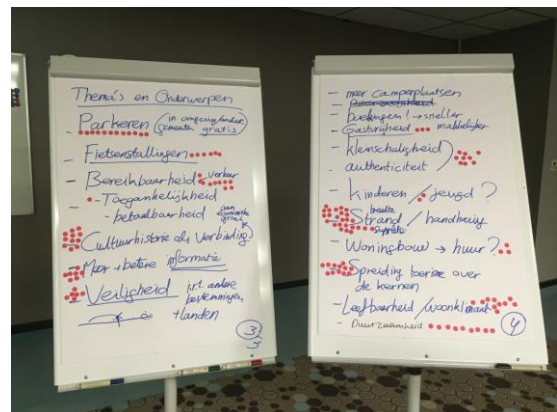 Thema's en Onderwerpen
- Parkeren (in omgeving/andere gemeenten gratis)
- Fietsenstallingen
- Bereikbaarheid verkeer
- Toegankelijkheid
- betaalbaarheid
- Cultuurhistorie als Verbinding
- Meer + betere informatie
- Veiligheid i.r.t. andere bestemmingen
+ landen
3
- meer camperplaatsen
- Boekingen! → sneller
- Gastvrijheid makkelijker
- kleinschaligheid
authenticiteit
- Kinderen / jeugd?
- Strand / handhaving
breedte
- Woningbouw → huur?
- Spreiding toerisme over
de kernen
- Leefbaarheid / woonklimaat
- Duurzaamheid
4